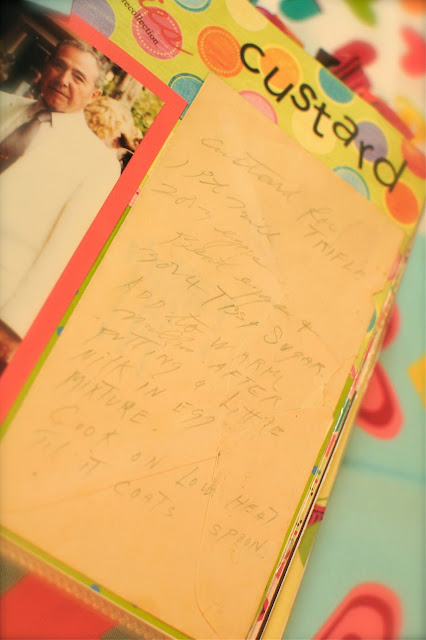 recollection
custard
Custard for
TRIFLE
1 pt milk
2 or 3 eggs
Beat eggs +
2 or 4 Tbsp SUGAR
ADD to WARM
AFTER
PUTTING A LITTLE
MILK IN EGG
MIXTURE.
COOK ON LOW HEAT
TIL IT COATS SPOON.